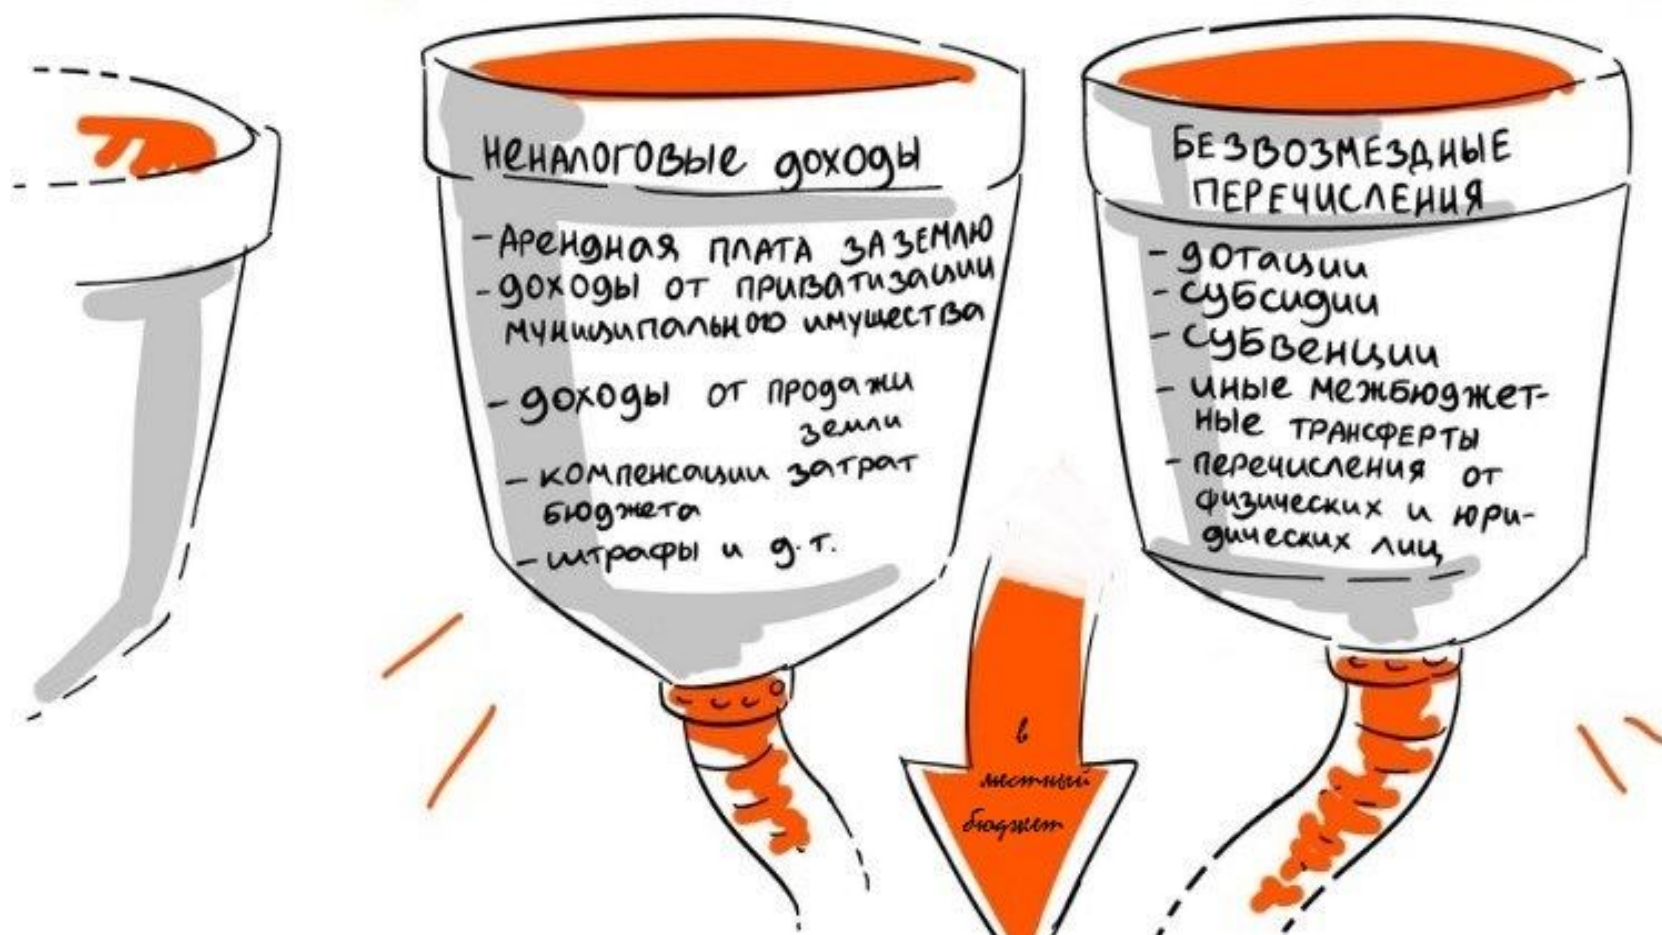 НЕНАЛОГОВЫЕ ДОХОДЫ
- АРЕНДНАЯ ПЛАТА ЗА ЗЕМЛЮ
- ДОХОДЫ ОТ ПРИВАТИЗАЦИИ
МУНИЦИПАЛЬНОГО ИМУЩЕСТВА
- ДОХОДЫ ОТ ПРОДАЖИ
ЗЕМЛИ
- КОМПЕНСАЦИИ ЗАТРАТ
БЮДЖЕТА
- ШТРАФЫ И Д.Т.
БЕЗВОЗМЕЗДНЫЕ
ПЕРЕЧИСЛЕНИЯ
- ДОТАЦИИ
- СУБСИДИИ
- СУБВЕНЦИИ
- ИНЫЕ МЕЖБЮДЖЕТ-
НЫЕ ТРАНСФЕРТЫ
- ПЕРЕЧИСЛЕНИЯ ОТ
ФИЗИЧЕСКИХ И ЮРИ-
ДИЧЕСКИХ ЛИЦ
в
местный
бюджет